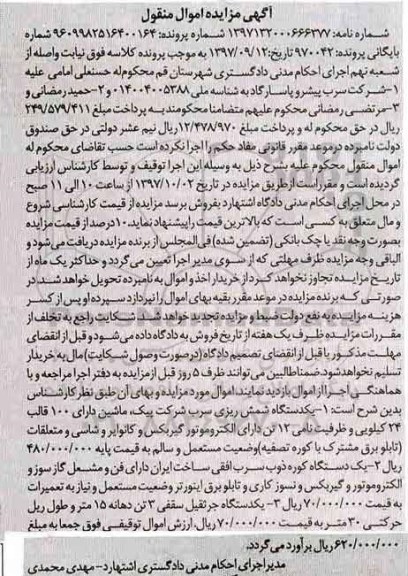 آگهی مزایده اموال منقول
شماره نامه: ۱۳۹۷۱۳۲۰۰۰۶۶۶۳۷۷ شماره پرونده: ۹۶۰۹۹۸۲۵۱۶۴۰۰۱۶۴ شماره
بایگانی پرونده: ۹۷۰۰۴۲ تاریخ: ۱۳۹۷/۰۹/۱۲ به موجب پرونده کلاسه فوق نیابت واصله از
شعبه نهم اجرای احکام مدنی دادگستری شهرستان قم محکوم‌له حسنعلی امامی علیه
۱-شرکت سرب پیشرو پاسارگاد به شناسه ملی ۱۴۰۰۴۰۰۵۳۸۸ و ۲-حمید رمضانی و
۳-مرتضی رمضانی محکوم علیهم متضامنا محکومند به پرداخت مبلغ ۲۴۹/۵۷۹/۴۱۱
ریال در حق محکوم له و پرداخت مبلغ ۱۲/۴۷۸/۹۷۰ ریال نیم عشر دولتی در حق صندوق
دولت نامبرده در موعد مقرر قانونی مفاد حکم را اجرا نکرده است حسب تقاضای محکوم له
اموال منقول محکوم علیه بشرح ذیل به وسیله این اجرا توقیف و توسط کارشناس ارزیابی
گردیده است و مقرر است از طریق مزایده در تاریخ ۱۳۹۷/۱۰/۰۲ از ساعت ۱۰ الی ۱۱ صبح
در محل اجرای احکام مدنی دادگاه اشتهارد بفروش برسد مزایده از قیمت کارشناسی شروع
و مال متعلق به کسی است که بالاترین قیمت را پیشنهاد نماید. ۱۰ درصد از قیمت مزایده
بصورت وجه نقد یا چک بانکی (تضمین شده) فی المجلس از برنده مزایده دریافت می‌شود و
الباقی وجه مزایده ظرف مهلتی که از سوی مدیر اجرا تعیین می‌گردد و حداکثر یک ماه از
تاریخ مزایده تجاوز نخواهد کرد از خریدار اخذ و اموال به نامبرده تحویل خواهد شد. در
صورتی که برنده مزایده در موعد مقرر بقیه بهای اموال را نپردازد سپرده او پس از کسر
هزینه مزایده به نفع دولت ضبط و مزایده تجدید خواهد شد. شکایت راجع به تخلف از
مقررات مزایده ظرف یک هفته از تاریخ فروش به دادگاه داده می‌شود و قبل از انقضای
مهلت مذکور یا قبل از انقضای تصمیم دادگاه (در صورت وصول شکایت) مال به خریدار
تسلیم نخواهد شود. ضمنا طالبین می‌توانند ظرف ۵ روز قبل از مزایده به دفتر اجرا مراجعه و با
هماهنگی اجرا از اموال بازدید نمایند. اموال مورد مزایده و بهای آن طبق نظر کارشناس
بدین شرح است: ۱-یکدستگاه شمش ریزی سرب شرکت پیک، ماشین دارای ۱۰۰ قالب
۲۴ کیلویی و ظرفیت نامی ۱۲ تن دارای الکتروموتور گیربکس و کانوایر و شاسی و متعلقات
(تابلو برق مشترک با کوره تصفیه) وضعیت مستعمل و سالم به قیمت پایه ۴۸۰/۰۰۰/۰۰۰
ریال ۲-یک دستگاه کوره ذوب سرب افقی ساخت ایران دارای فن و مشعل گازسوز و
الکتروموتور و گیربکس و نسوز کاری و تابلو برق اینورتر وضعیت مستعمل و نیاز به تعمیرات
به قیمت ۷۰/۰۰۰/۰۰۰ ریال ۳-یکدستگاه جرثقیل سقفی ۳ تن دهانه ۱۵ متر و طول ریل
حرکتی ۳۰ متر به قیمت ۷۰/۰۰۰/۰۰۰ ریال. ارزش اموال توقیفی فوق جمعا به مبلغ
۶۲۰/۰۰۰/۰۰۰ ریال برآورد می‌گردد.
مدیر اجرای احکام مدنی دادگستری اشتهارد- مهدی محمدی